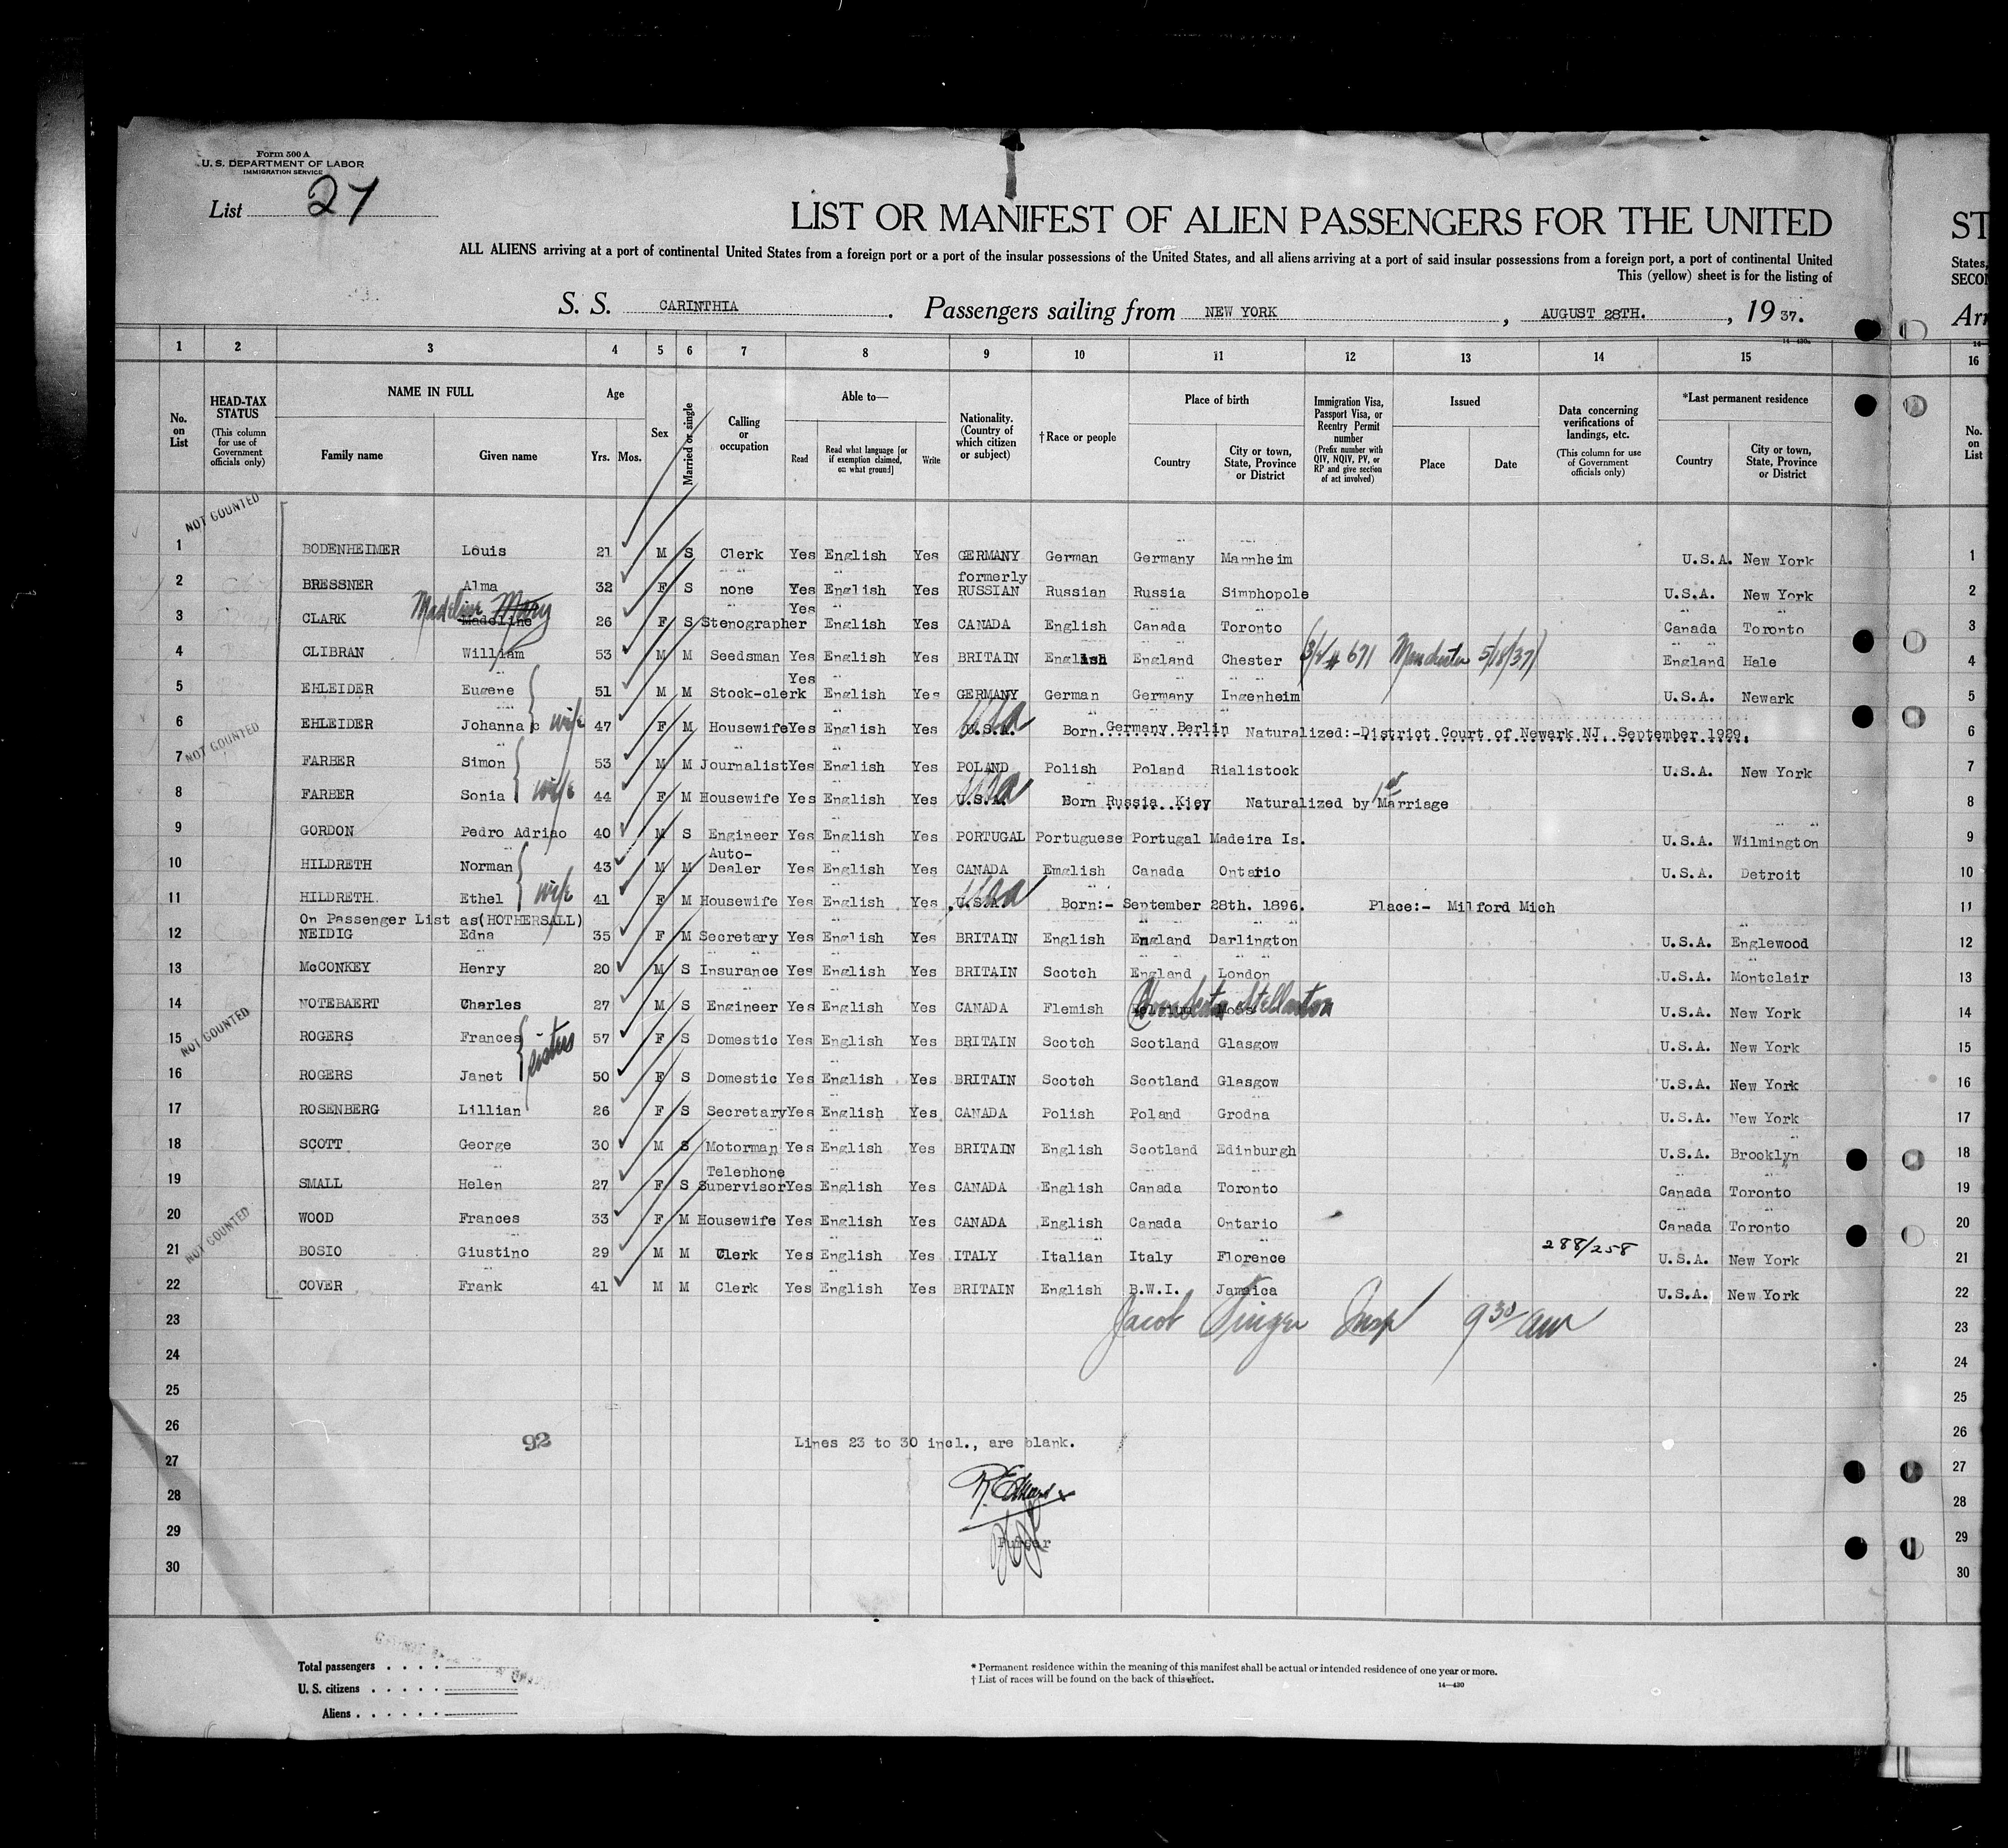 Form 500 A
U. S. DEPARTMENT OF LABOR
IMMIGRATION SERVICE
List 27
LIST OR MANIFEST OF ALIEN PASSENGERS FOR THE UNITED ST
ALL ALIENS arriving at a port of continental United States from a foreign port or a port of the insular possessions of the United States, and all aliens arriving at a port of said insular possessions from a foreign port, a port of continental United States,
This (yellow) sheet is for the listing of
S. S. CARINTHIA. Passengers sailing from NEW YORK, AUGUST 28TH., 1937.
1 2 3 4 5 6 7 8 9 10 11 12 13 14 15 16
No. on List
HEAD-TAX STATUS
(This column for use of Government officials only)
NAME IN FULL
Family name Given name
Age
Yrs. Mos.
Sex
Married or single
Calling or occupation
Able to—
Read
Read what language [or if exemption claimed, on what ground]
Write
Nationality. (Country of which citizen or subject)
†Race or people
Place of birth
Country
City or town, State, Province or District
Immigration Visa, Passport Visa, or Reentry Permit number
(Prefix number with QIV, NQIV, PV, or RP and give section of act involved)
Issued
Place Date
Data concerning verifications of landings, etc.
(This column for use of Government officials only)
*Last permanent residence
Country
City or town, State, Province or District
No. on List
NOT COUNTED
1 BODENHEIMER Louis 21 M S Clerk Yes English Yes GERMANY German Germany Mannheim U.S.A. New York 1
2 BRESSNER Alma 32 F S none Yes English Yes formerly RUSSIAN Russian Russia Simphopole U.S.A. New York 2
Madeline Mary
3 CLARK Madeline 26 F S Stenographer Yes English Yes CANADA English Canada Toronto Canada Toronto 3
4 CLIBRAN William 53 M M Seedsman Yes English Yes BRITAIN English England Chester 671 Manchester 5/18/37 England Hale 4
5 EHLEIDER Eugene 51 M M Stock-clerk Yes English Yes GERMANY German Germany Ingenheim U.S.A. Newark 5
6 EHLEIDER Johanna wife 47 F M Housewife Yes English Yes U.S.A. Born Germany Berlin Naturalized:-District Court of Newark NJ. September 1929. 6
NOT COUNTED
7 FARBER Simon 53 M M Journalist Yes English Yes POLAND Polish Poland Rialistock U.S.A. New York 7
8 FARBER Sonia wife 44 F M Housewife Yes English Yes U.S.A. Born Russia Kiev Naturalized by Marriage 8
9 GORDON Pedro Adriao 40 M S Engineer Yes English Yes PORTUGAL Portuguese Portugal Madeira Is. U.S.A. Wilmington 9
10 HILDRETH Norman 43 M M Auto-Dealer Yes English Yes CANADA Emglish Canada Ontario U.S.A. Detroit 10
11 HILDRETH Ethel wife 41 F M Housewife Yes English Yes U.S.A. Born:- September 28th. 1896. Place:- Milford Mich 11
On Passenger List as(HOTHERSALL)
12 NEIDIG Edna 35 F M Secretary Yes English Yes BRITAIN English England Darlington U.S.A. Englewood 12
13 McCONKEY Henry 20 M S Insurance Yes English Yes BRITAIN Scotch England London U.S.A. Montclair 13
14 NOTEBAERT Charles 27 M S Engineer Yes English Yes CANADA Flemish Stellarton U.S.A. New York 14
NOT COUNTED
15 ROGERS Frances 57 F S Domestic Yes English Yes BRITAIN Scotch Scotland Glasgow U.S.A. New York 15
sisters
16 ROGERS Janet 50 F S Domestic Yes English Yes BRITAIN Scotch Scotland Glasgow U.S.A. New York 16
17 ROSENBERG Lillian 26 F S Secretary Yes English Yes CANADA Polish Poland Grodna U.S.A. New York 17
18 SCOTT George 30 M S Motorman Yes English Yes BRITAIN English Scotland Edinburgh U.S.A. Brooklyn 18
19 SMALL Helen 27 F S Telephone Supervisor Yes English Yes CANADA English Canada Toronto Canada Toronto 19
20 WOOD Frances 33 F M Housewife Yes English Yes CANADA English Canada Ontario Canada Toronto 20
NOT COUNTED
21 BOSIO Giustino 29 M M Clerk Yes English Yes ITALY Italian Italy Florence 288/258 U.S.A. New York 21
22 COVER Frank 41 M M Clerk Yes English Yes BRITAIN English B.W.I. Jamaica U.S.A. New York 22
23 Jacob Singer Insp 9 30 am 23
24 24
25 25
26 26
92 Lines 23 to 30 incl., are blank.
27 27
28 28
29 Purser 29
30 30
Total passengers
U. S. citizens
Aliens
* Permanent residence within the meaning of this manifest shall be actual or intended residence of one year or more.
† List of races will be found on the back of this sheet.
14—430